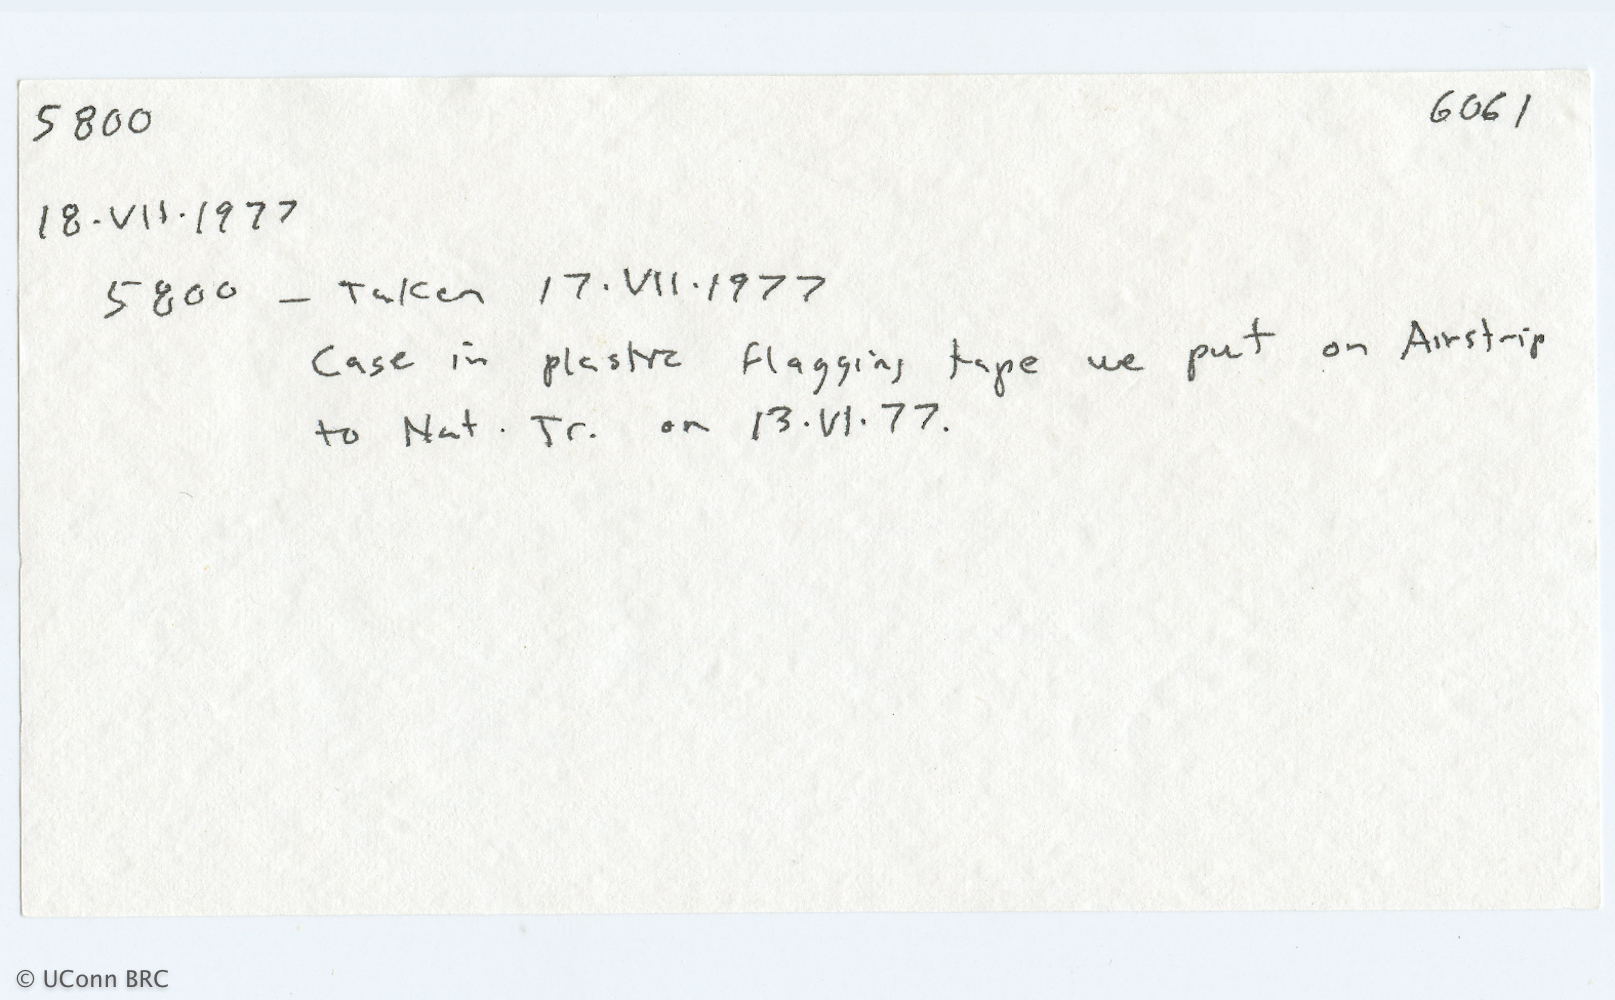 5800 6061
18.VII.1977
5800 – Taken 17.VII.1977
Case in plastic flagging tape we put on Airstrip
to Nat. Tr. on 13.VI.77.
© UConn BRC